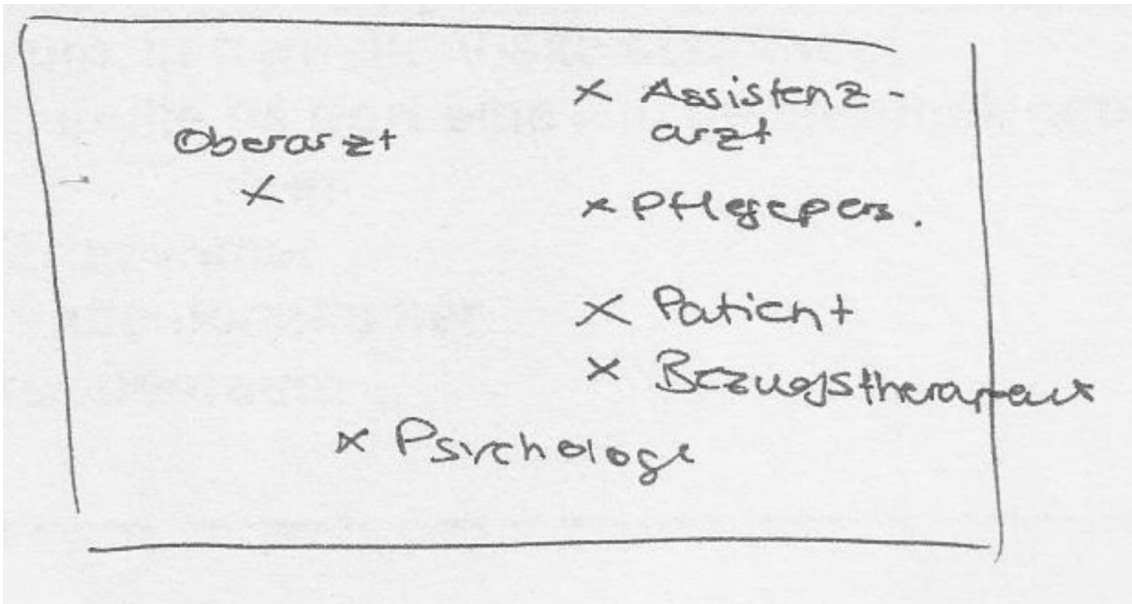 Oberarzt
x
x Assistenz-
arzt
x Pflegepers.
x Patient
x Bezugstherapeut
x Psychologe